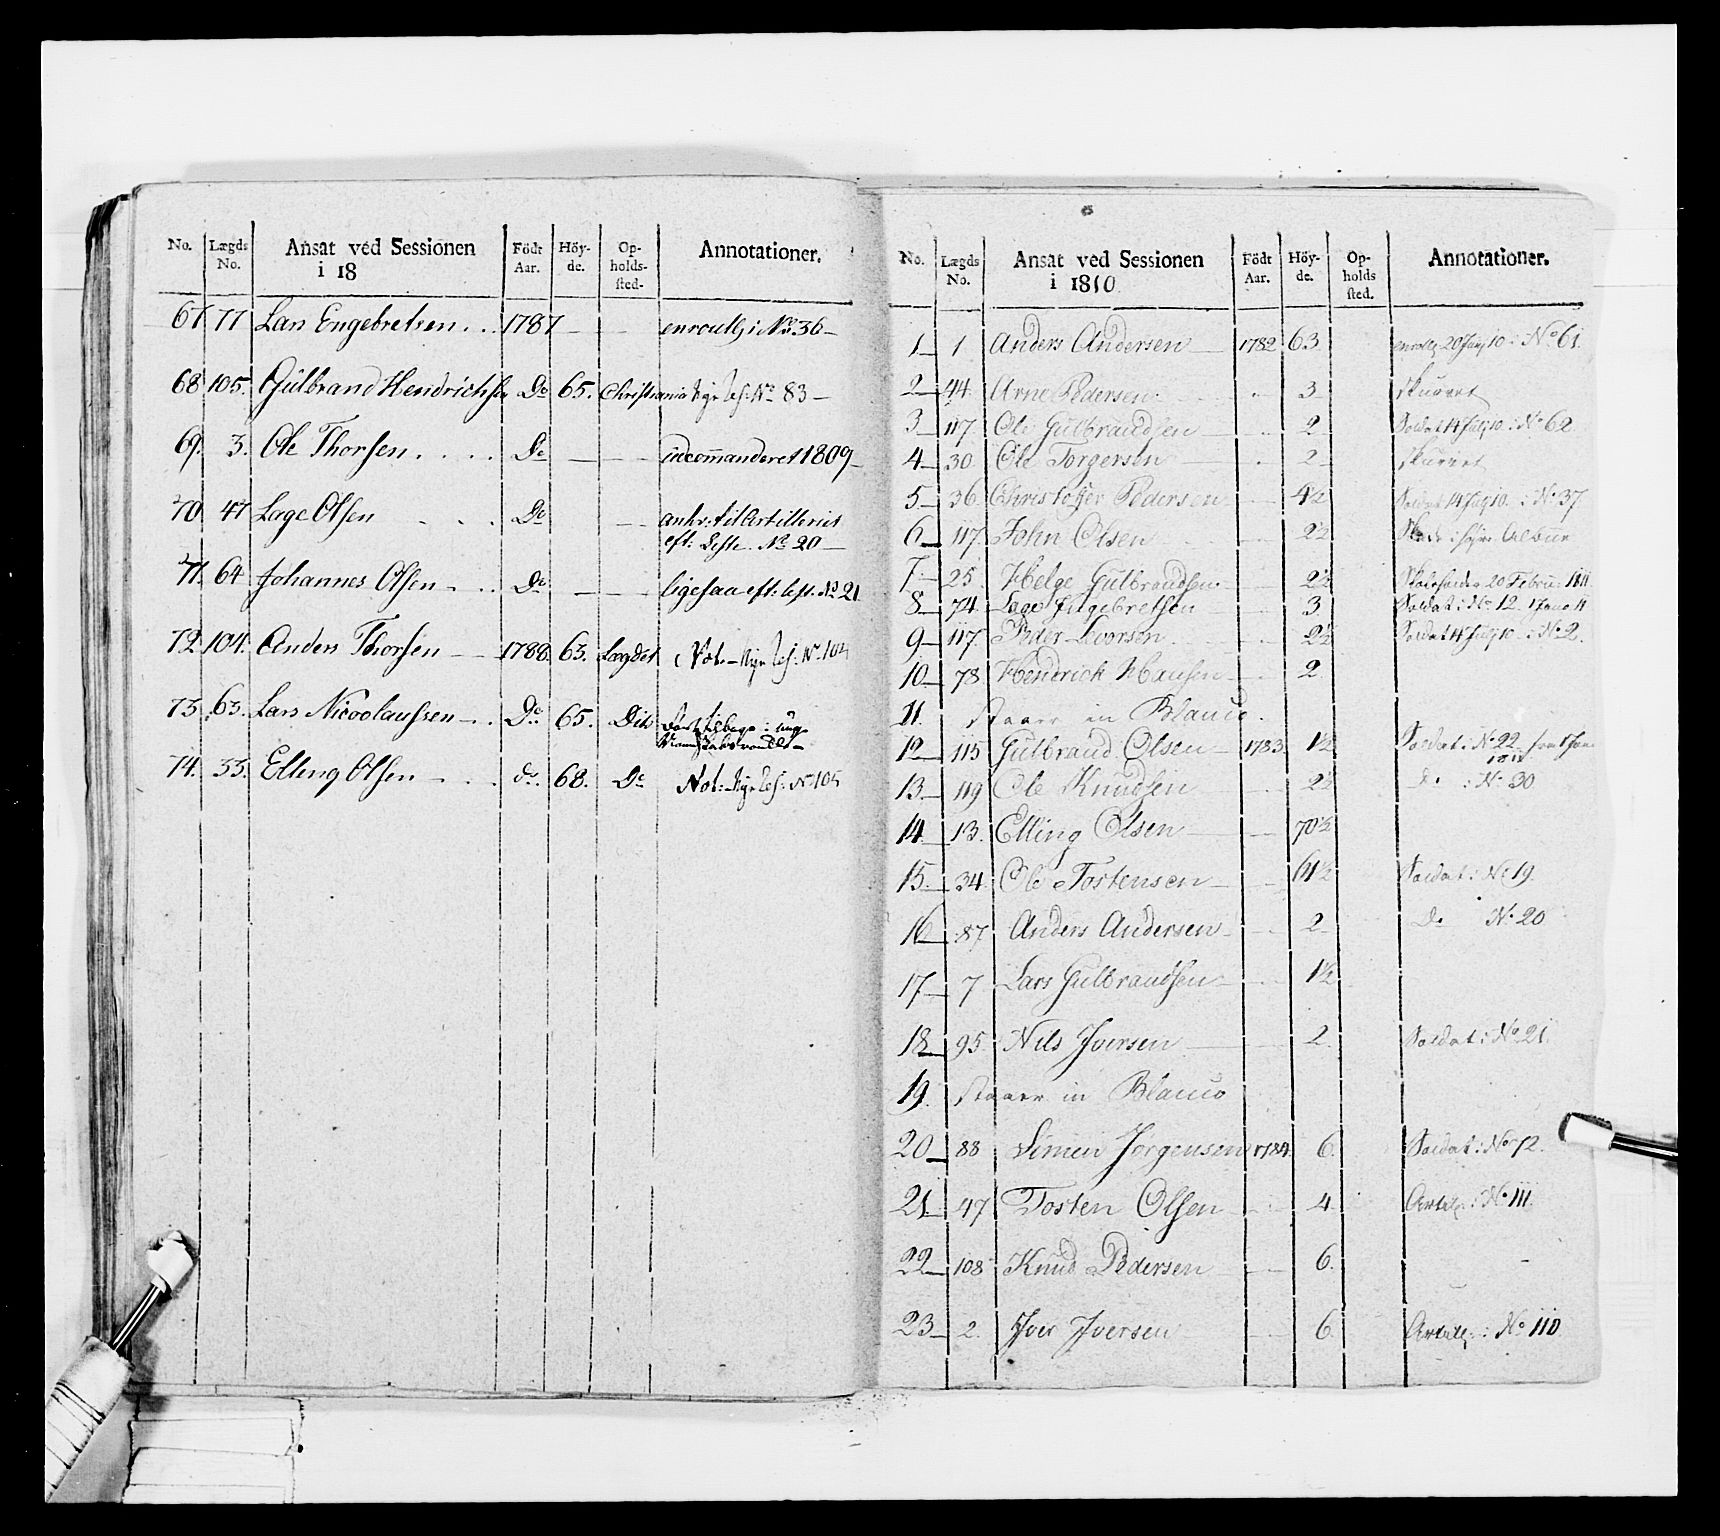 No. Lægds No. Ansat ved Sessionen i 18 Födt Aar. Höy-de. Op-holds-sted- Annotationer.
67 77 Lars Engebretsen . . 1787 — — enroull: i No 36 —
68 105. Gulbrand Hendrichsen Do 65. Christiania No 83 —
69. 3. Ole Thorsen . . . . Do — — incommanderet 1809
70 47 Lage Olsen . . . Do — anhv: til Artilleriet
eft: Liste No 20 —
71. 64 Johannes Olsen — . . Do — — ligesaa eft: List. No 21
72 104. Anders Thorsen — 1788. 63. Lægdet Not. No 104
73 63. Lars Nicolaussen — . Do 65. Dito
74. 33. Elling Olsen — . . do. 68. Do Not: No 105
No. Lægds No. Ansat ved Sessionen i 1810. Födt Aar. Höy-de. Op-holds sted. Annotationer.
1 — 1 Anders Andersen — 1782 63 20 Juny 10 : No 61
2 — 44. Arne Pedersen 3 skurvet
3 — 117 Ole Gulbrandsen 2 Soldat 14 July 10. : No 62
4 — 30. Ole Torgersen — 2 — skurvet
5 — 36 Christoffer Pedersen 4½ Soldat 14 July 10. : No 37
6 — 117 John Olsen 2½
7 — 25. Helge Gulbrandsen 2½ 20 Febru: 1811
8 — 74. Lage Ingebretsen 3 Soldat: No 12
9 — 117. Peder Iversen 2½ Soldat 14 July 10 : No 2.
10 — 78 Hendrick Hansen 2
11. staaer in Blanco.
12 — 115 Gulbrand Olsen — 1783 1½ Soldat: No 22
1811
13. — 119 Ole Knudsen — 2½ Do : No 30
14 — 13. Elling Olsen — 70½
15. — 34 Ole Tostensen — 61½ Soldat: No 19.
16 — 87 Anders Andersen — 2 Do No 20
17. — 7 Lars Gulbrandsen — 1½
18 — 95. Nils Iversen — 2 Soldat: No 21.
19. staaer in Blanco
20 — 88 Simen Jörgensen 1784. 6. Soldat: No 72.
21. — 47 Tosten Olsen — 4. : No 111.
22 — 108 Knud Pedersen — 6.
23 — 2. Iver Iversen 6 : No 110